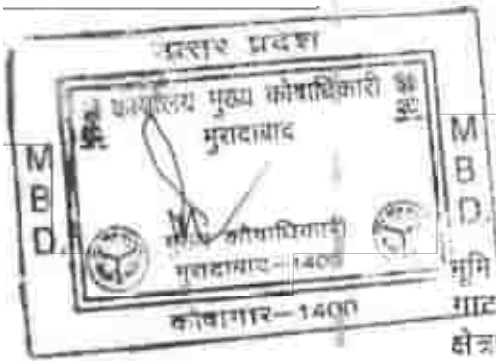 उत्तर प्रदेश
कार्यालय मुख्य कोषाधिकारी
मुरादाबाद
M
B
D.
M
B
D.
मुख्य कोषाधिकारी
मुरादाबाद-1400
कोषागार-1400
भूमि
गाटा
क्षेत्र